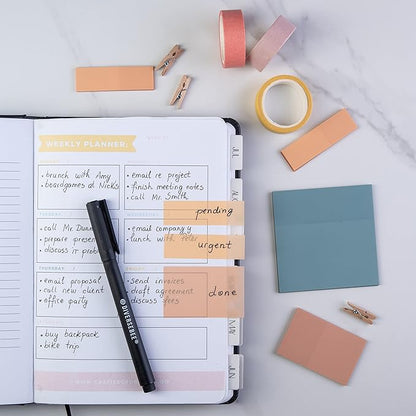 WEEKLY PLANNER:
• brunch with Amy
• boardgames at Nick's
• email re project
• finish meeting notes
• call Mr. Smith
TUESDAY
• call Mr
• prepare
• discuss
• email company
• lunch with
THURSDAY
• email proposal
• call new client
• office party
• send invoices
• draft agreement
• discuss fees
• buy backpack
• bike trip
pending
urgent
done
DIVERSEBEE
JUL
MAY
JUN